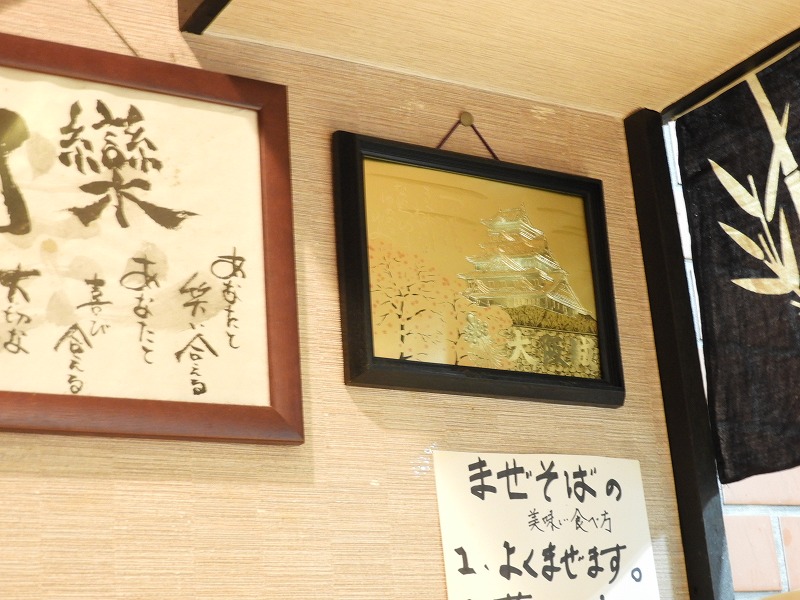 欒
あなたと
笑い合える
あなたと
喜び
合える
大切な
大阪城
まぜそばの
美味い食べ方
1、よくまぜます。